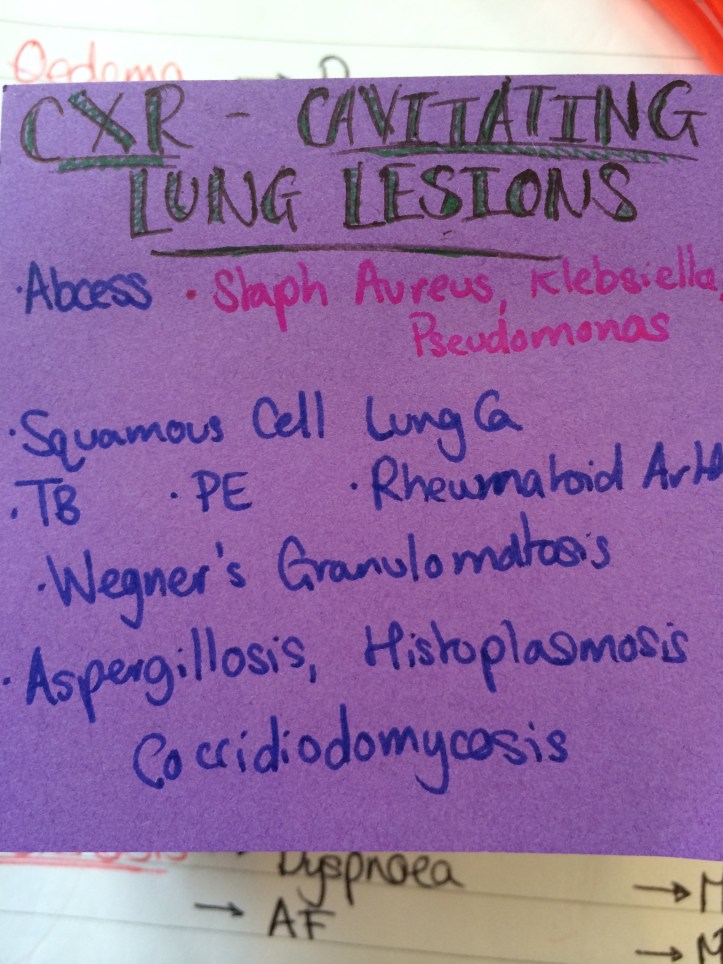 Oedema
CXR - CAVITATING
LUNG LESIONS
· Abcess · Staph Aureus, Klebsiella,
Pseudomonas
· Squamous Cell Lung Ca
· TB · PE · Rheumatoid
· Wegner's Granulomatosis
· Aspergillosis, Histoplasmosis
Coccidiodomycosis
· Dyspnoea
→ AF